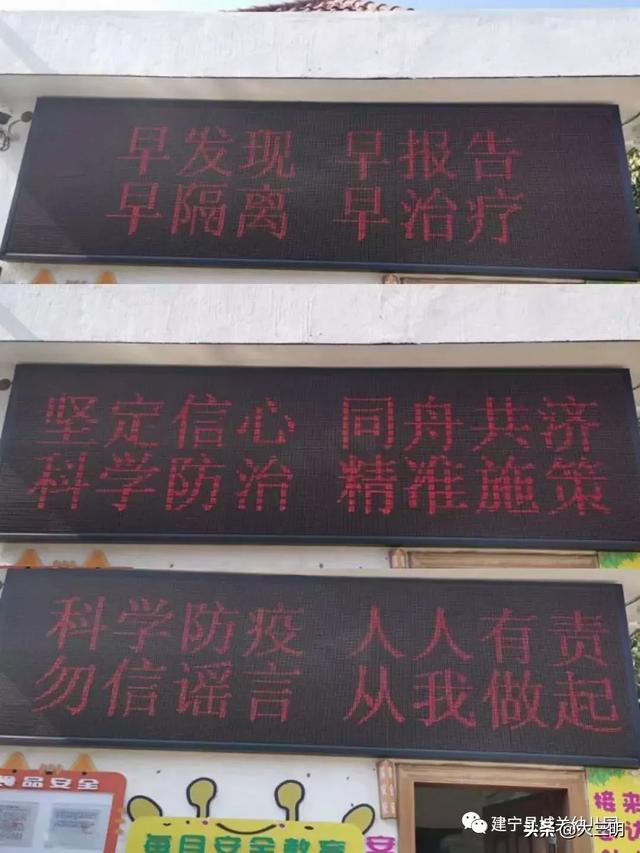 早发现 早报告
早隔离 早治疗
坚定信心 同舟共济
科学防治 精准施策
科学防疫 人人有责
勿信谣言 从我做起
食品安全
每日安全教育
接来
建宁县
幼儿园
头条@大三明